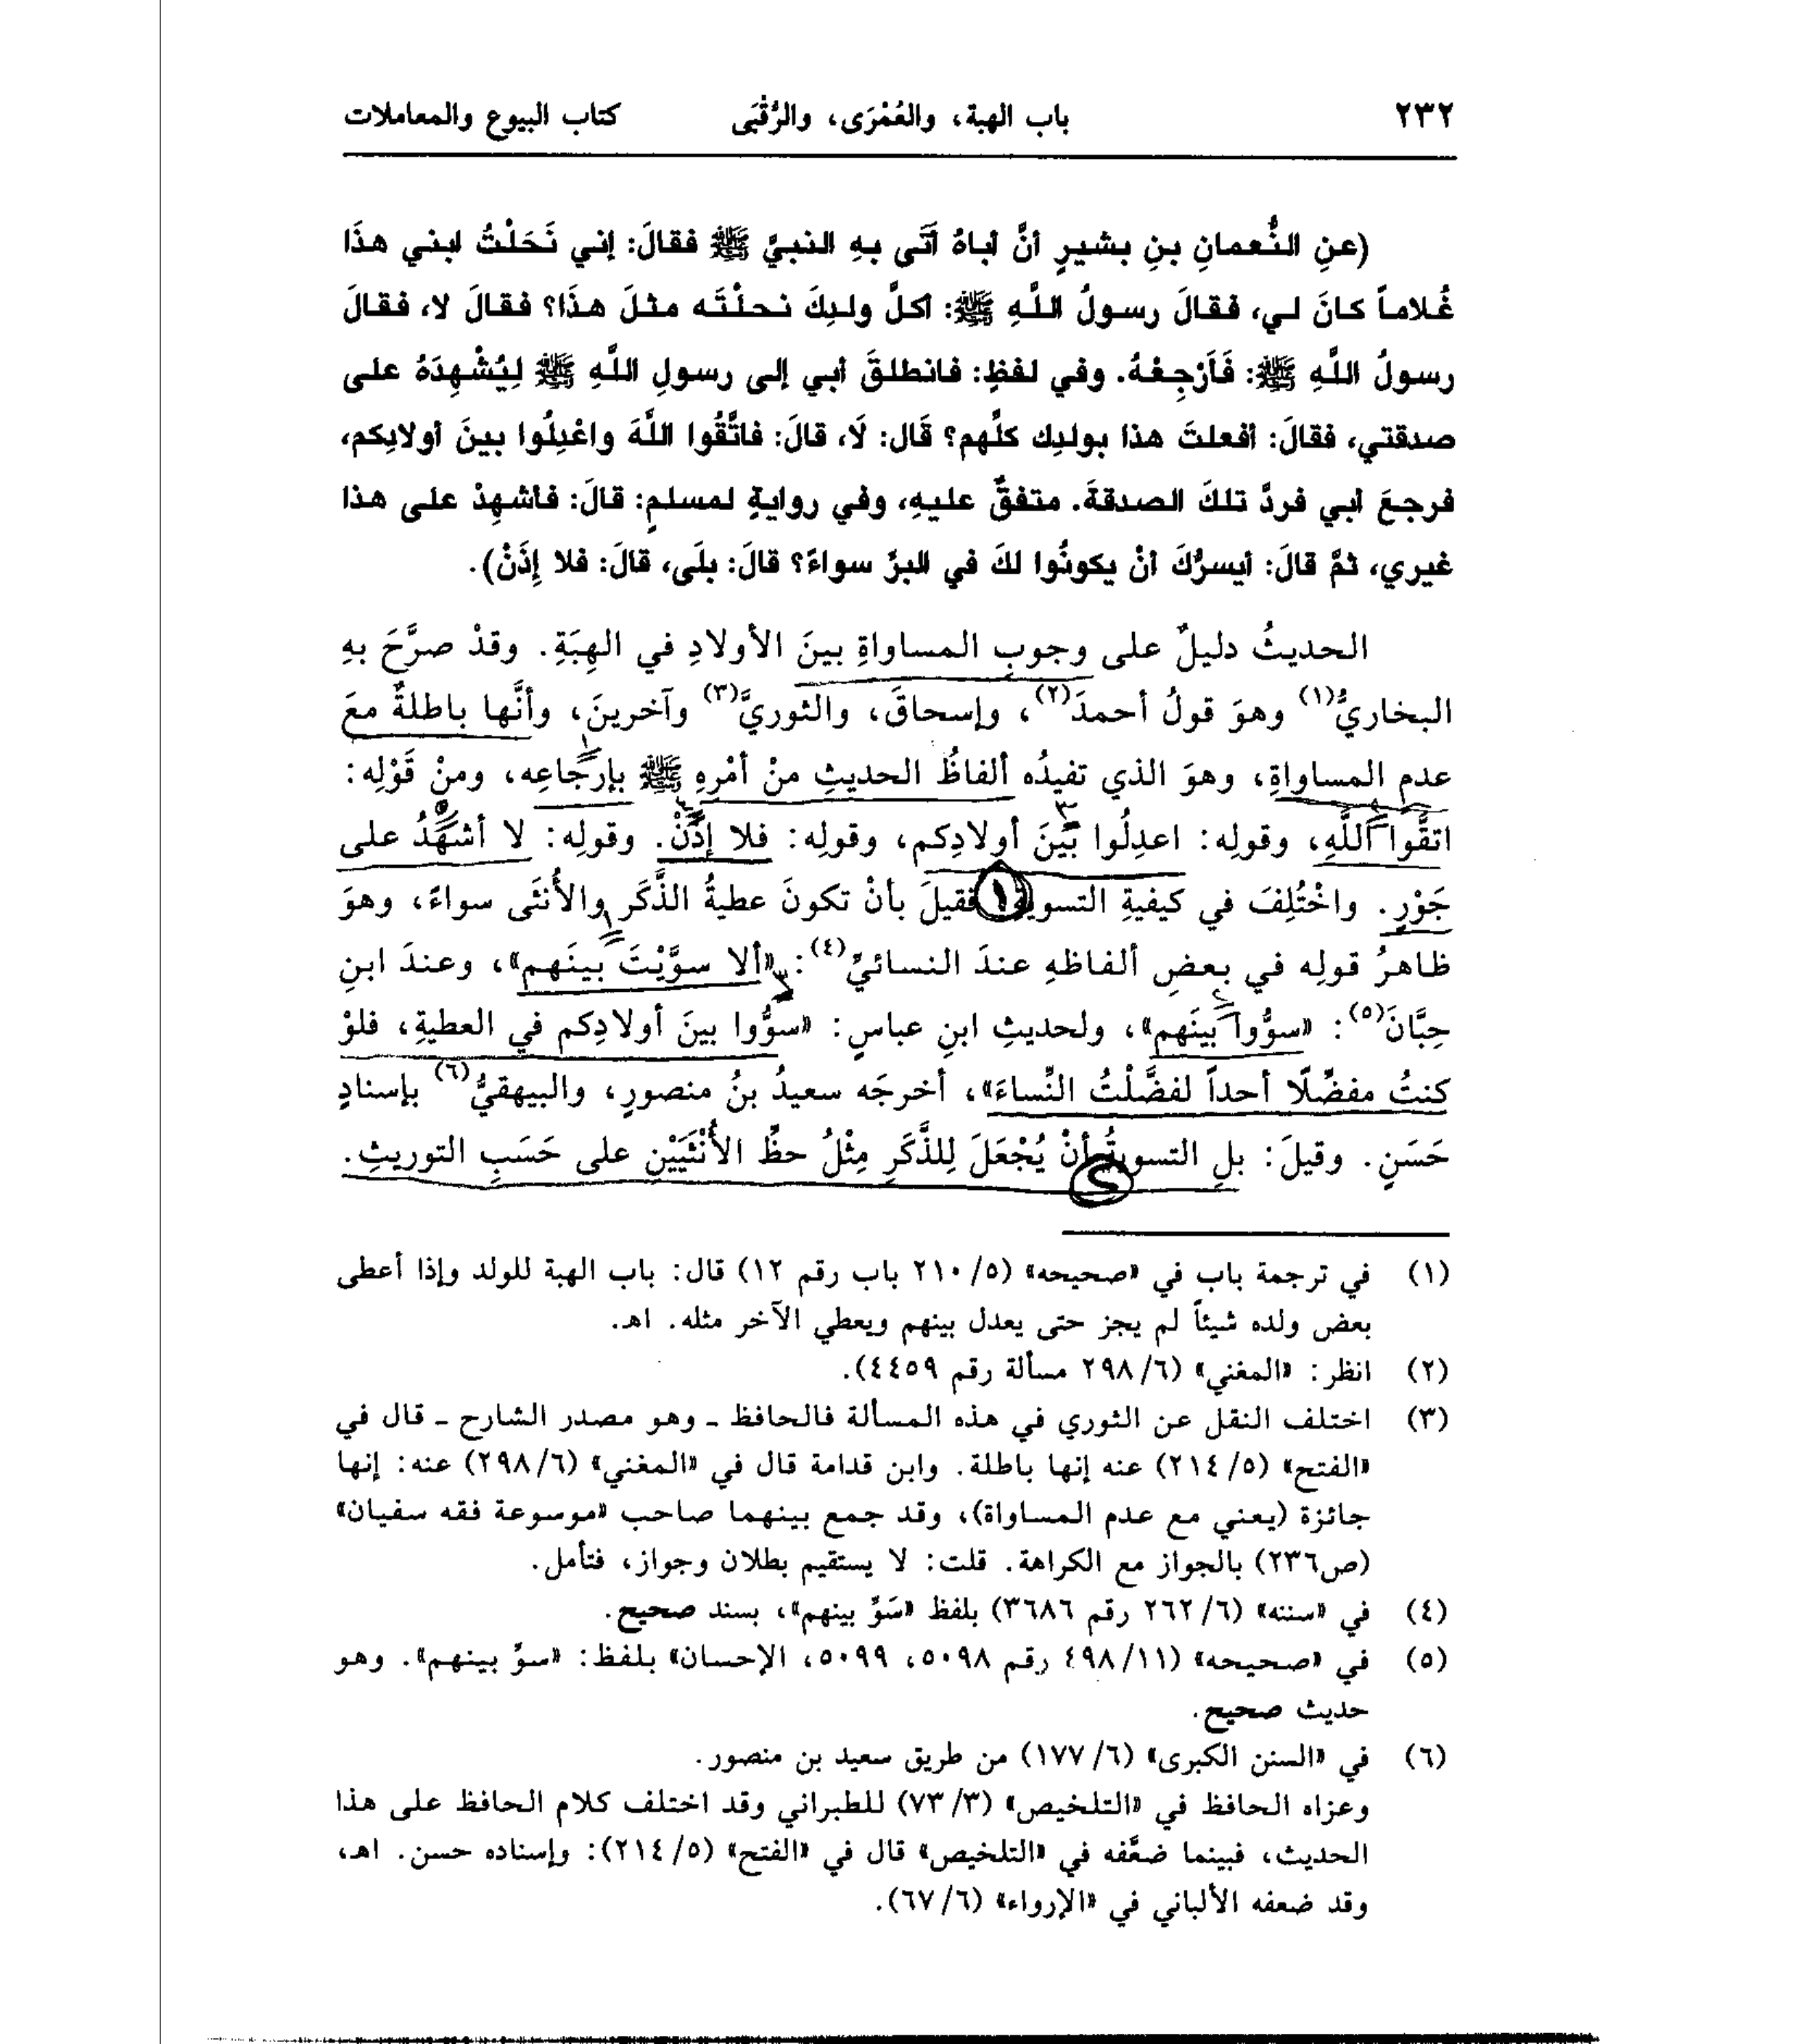 ٢٣٢ باب الهبة، والعُمْرَى، والرُّقْبَى كتاب البيوع والمعاملات
(عنِ النُّعمانِ بنِ بشيرٍ أنَّ أباهُ أَتَى بهِ النبيَّ ﷺ فقالَ: إني نَحَلْتُ ابني هذَا
غُلاماً كانَ لي، فقالَ رسولُ اللَّهِ ﷺ: أكلَّ ولدِكَ نحلْتَه مثلَ هذَا؟ فقالَ لا، فقالَ
رسولُ اللَّهِ ﷺ: فَأَرْجِعْهُ. وفي لفظٍ: فانطلقَ أبي إلى رسولِ اللَّهِ ﷺ لِيُشْهِدَهُ على
صدقتي، فقالَ: أفعلتَ هذا بولدِك كلِّهم؟ قَال: لَا، قالَ: فاتَّقُوا اللَّهَ واعْدِلُوا بينَ أولادِكم،
فرجعَ أبي فردَّ تلكَ الصدقةَ. متفقٌ عليهِ، وفي روايةٍ لمسلمٍ: قالَ: فأشهِدْ على هذا
غيري، ثمَّ قالَ: أيسرُّكَ أنْ يكونُوا لكَ في البرِّ سواءً؟ قالَ: بلَى، قالَ: فلا إِذَنْ).
الحديثُ دليلٌ على وجوبِ المساواةِ بينَ الأولادِ في الهِبَةِ. وقدْ صرَّحَ بهِ
البخاريُّ(١) وهوَ قولُ أحمدَ(٢)، وإسحاقَ، والثوريَّ(٣) وآخرينَ، وأنَّها باطلةٌ معَ
عدمِ المساواةِ، وهوَ الذي تفيدُه ألفاظُ الحديثِ منْ أمْرِهِ ﷺ بإرجَاعِه، ومنْ قَوْلِه:
اتقُوا اللَّهِ، وقولِه: اعدِلُوا بَيْنَ أولادِكم، وقولِه: فلا إذَنْ. وقولِه: لا أشهَدُ على
جَوْرٍ. واخْتُلِفَ في كيفيةِ التسويةِ ١ فقيلَ بأنْ تكونَ عطيةُ الذَّكَرِ والأُنثَى سواءً، وهوَ
ظاهرُ قولِه في بعضِ ألفاظهِ عندَ النسائيِّ(٤): «ألا سوَّيْتَ بينَهم»، وعندَ ابنِ
حِبَّانَ(٥): «سوُّوا بينَهم»، ولحديثِ ابنِ عباسٍ: «سوُّوا بينَ أولادِكم في العطيةِ، فلوْ
كنتُ مفضِّلًا أحداً لفضَّلْتُ النِّساءَ»، أخرجَه سعيدُ بنُ منصورٍ، والبيهقيُّ(٦) بإسنادٍ
حَسَنٍ. وقيلَ: بلِ التسويةُ ٢ أنْ يُجْعَلَ لِلذَّكَرِ مِثْلُ حظِّ الأُنْثَيَيْنِ على حَسَبِ التوريثِ.
(١) في ترجمة باب في «صحيحه» (٥/ ٢١٠ باب رقم ١٢) قال: باب الهبة للولد وإذا أعطى
بعض ولده شيئاً لم يجز حتى يعدل بينهم ويعطي الآخر مثله. اهـ.
(٢) انظر: «المغني» (٦/ ٢٩٨ مسألة رقم ٤٤٥٩).
(٣) اختلف النقل عن الثوري في هذه المسألة فالحافظ ـ وهو مصدر الشارح ـ قال في
«الفتح» (٥/ ٢١٤) عنه إنها باطلة. وابن قدامة قال في «المغني» (٦/ ٢٩٨) عنه: إنها
جائزة (يعني مع عدم المساواة)، وقد جمع بينهما صاحب «موسوعة فقه سفيان»
(ص٢٣٦) بالجواز مع الكراهة. قلت: لا يستقيم بطلان وجواز، فتأمل.
(٤) في «سننه» (٦/ ٢٦٢ رقم ٣٦٨٦) بلفظ «سَوِّ بينهم»، بسند صحيح.
(٥) في «صحيحه» (١١/ ٤٩٨ رقم ٥٠٩٨، ٥٠٩٩، الإحسان» بلفظ: «سوِّ بينهم». وهو
حديث صحيح.
(٦) في «السنن الكبرى» (٦/ ١٧٧) من طريق سعيد بن منصور.
وعزاه الحافظ في «التلخيص» (٣/ ٧٣) للطبراني وقد اختلف كلام الحافظ على هذا
الحديث، فبينما ضعَّفه في «التلخيص» قال في «الفتح» (٥/ ٢١٤): وإسناده حسن. اهـ،
وقد ضعفه الألباني في «الإرواء» (٦/ ٦٧).